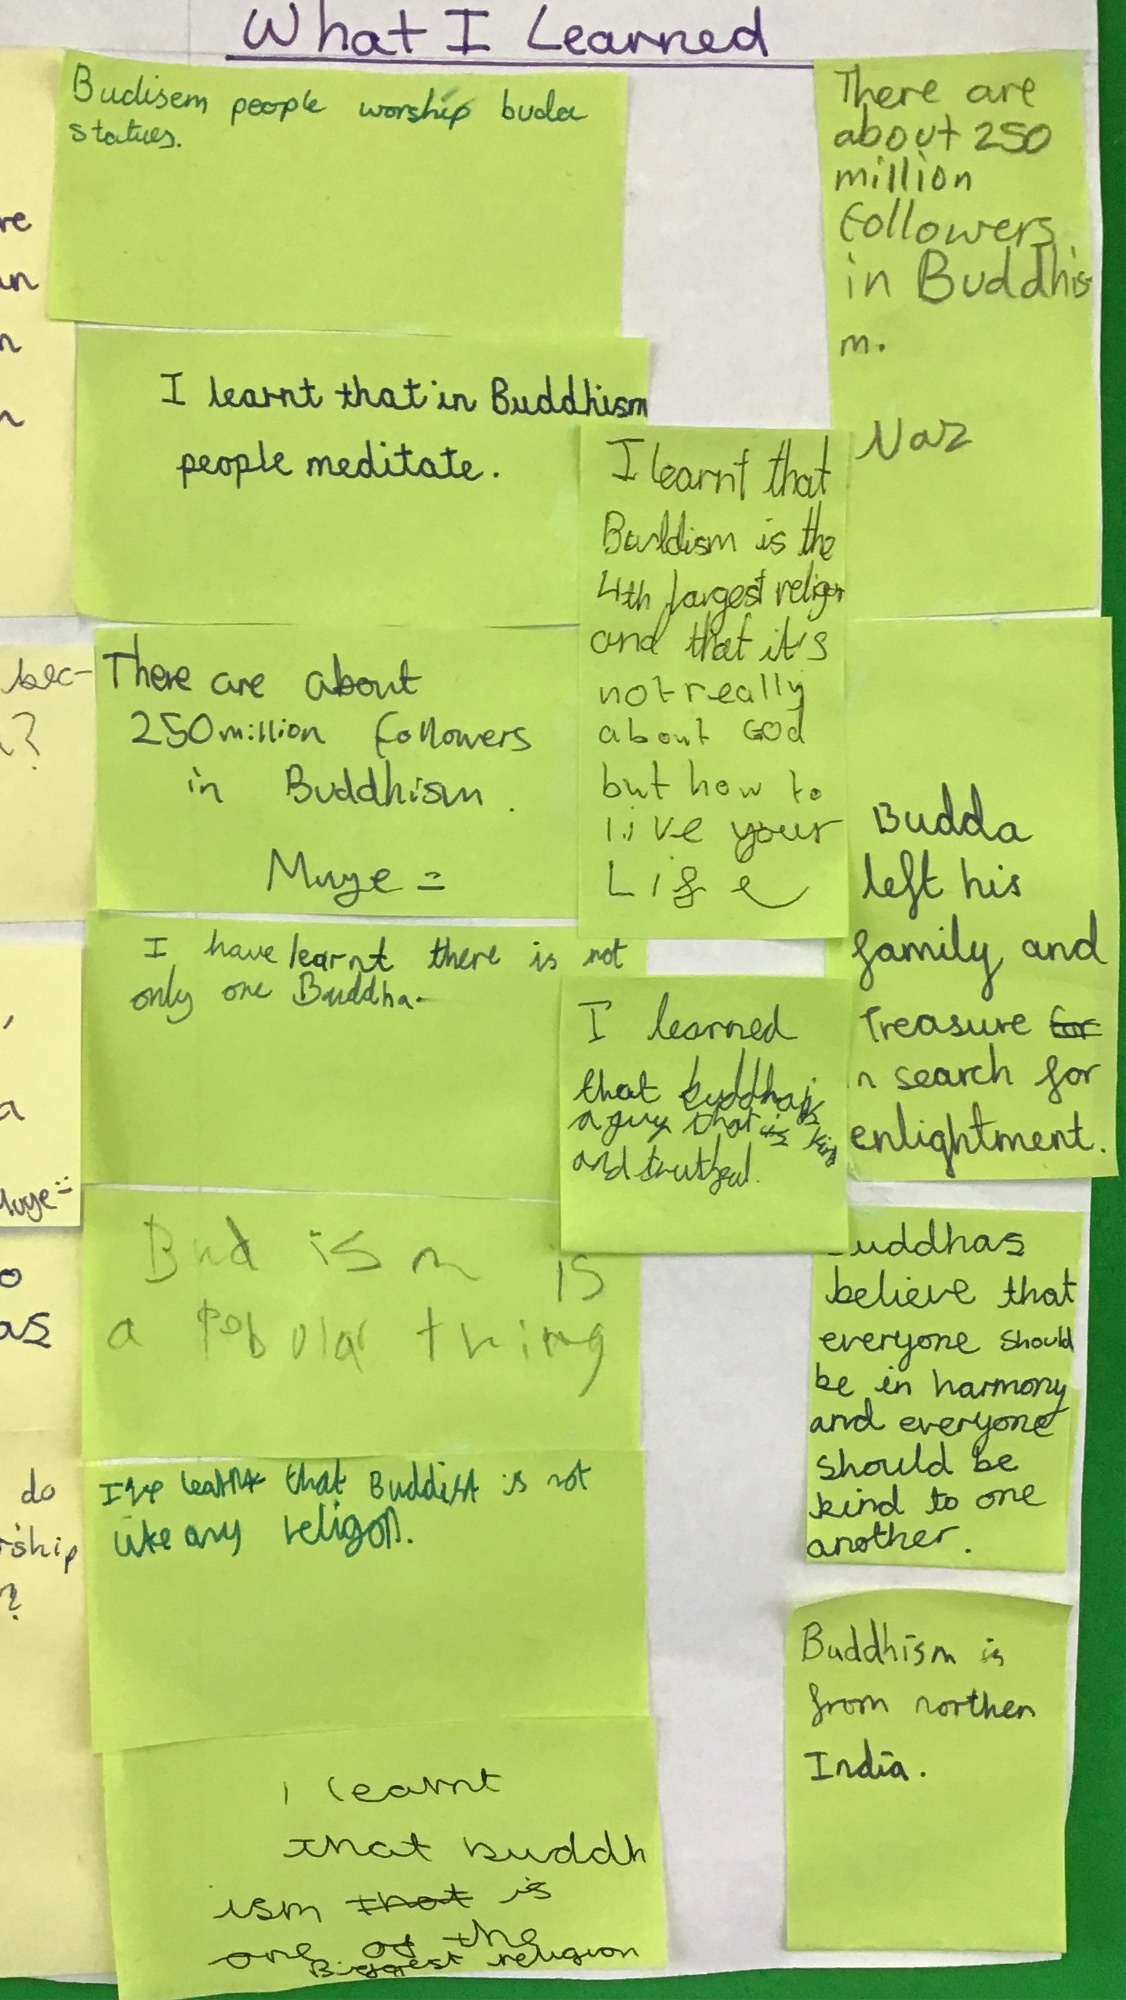 What I Learned
Budisem people worship buda
statues.
I learnt that in Buddhism
people meditate.
There are about
250 million followers
in Buddhism.
Muye =
I have learnt there is not
only one Buddha.
Budism is
a Popular thing
I've learnt that Buddist is not
like any religon.
I learnt
that buddh
ism that is
one of the
Biggest religion
I learnt that
Buddism is the
4th largest religon
and that it's
not really
about God
but how to
live your
Life
I learned
that buddha is
a guy that is kind
and truthful.
There are
about 250
million
followers
in Buddhis
m.
Naz
Budda
left his
family and
treasure for
n search for
enlightment.
uddhas
believe that
everyone should
be in harmony
and everyone
should be
kind to one
another.
Buddhism is
from northen
India.
re
un
n
bec-
?
,
a
Muye=
o
as
do
rship
?